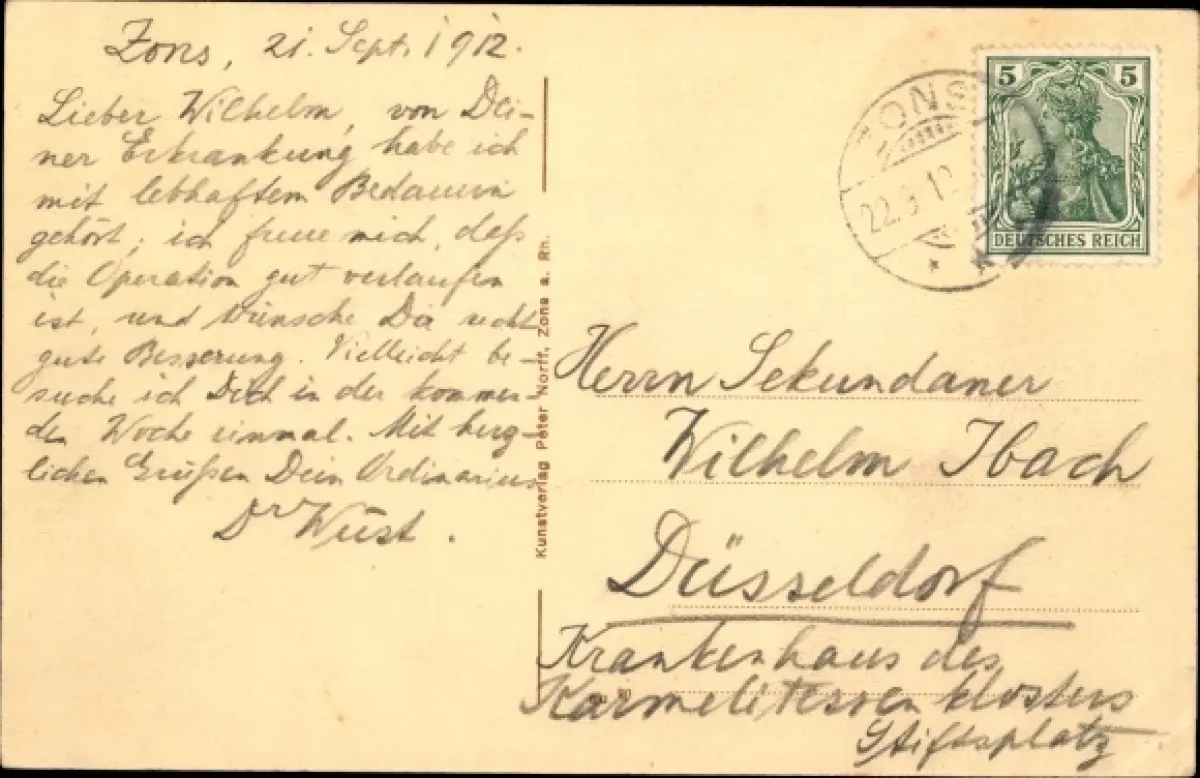 Zons, 21. Sept. 1912.
Lieber Wilhelm, von Dei-
ner Erkrankung habe ich
mit lebhaftem Bedauern
gehört; ich freue mich, daß
die Operation gut verlaufen
ist, und wünsche Dir recht
gute Besserung. Vielleicht be-
suche ich Dich in der kommen-
den Woche einmal. Mit herz-
lichen Grüßen Dein Ordinarius
Dr Wüst.
Kunstverlag Peter Norff, Zons a. Rh.
ZONS
22.9.12
5 5
DEUTSCHES REICH
Herrn Sekundaner
Wilhelm Ibach
Düsseldorf
Krankenhaus des
Karmelitessenklosters
Stiftsplatz